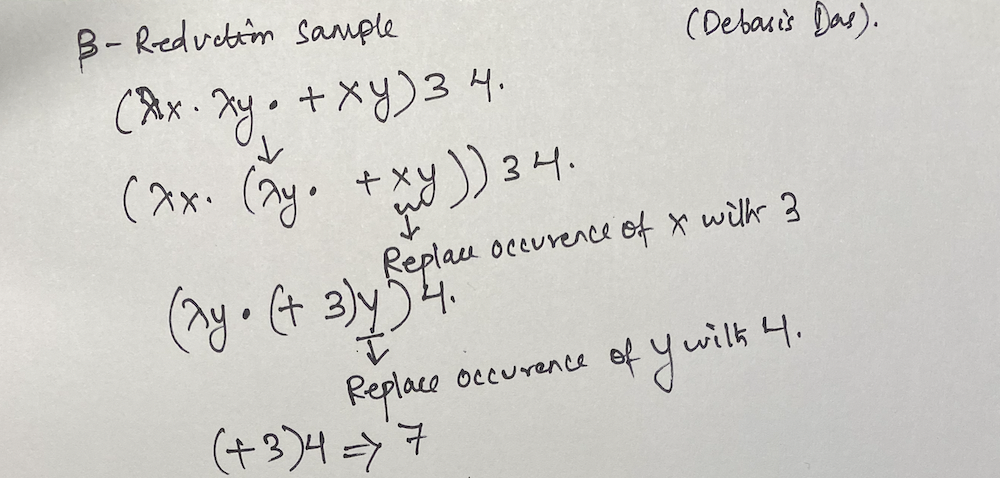 β- Reduction Sample (Debasis Das).
(λx. λy. + xy) 3 4.
↓
(λx. (λy. + xy)) 3 4.
↓
Replace occurence of x with 3
(λy. (+ 3)y) 4.
↓
Replace occurence of y with 4.
(+ 3)4 => 7